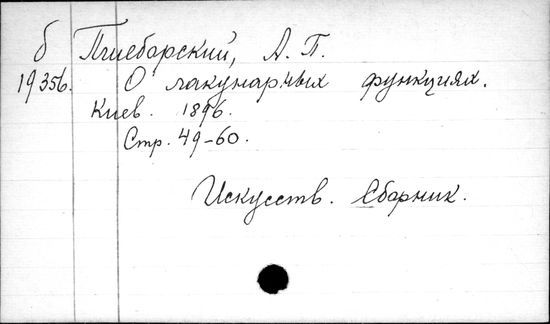 б Пшеборский, А. П.
19356. О лакунарных функциях.
Киев. 1896.
Стр. 49-60.
Искусств. Сборник.